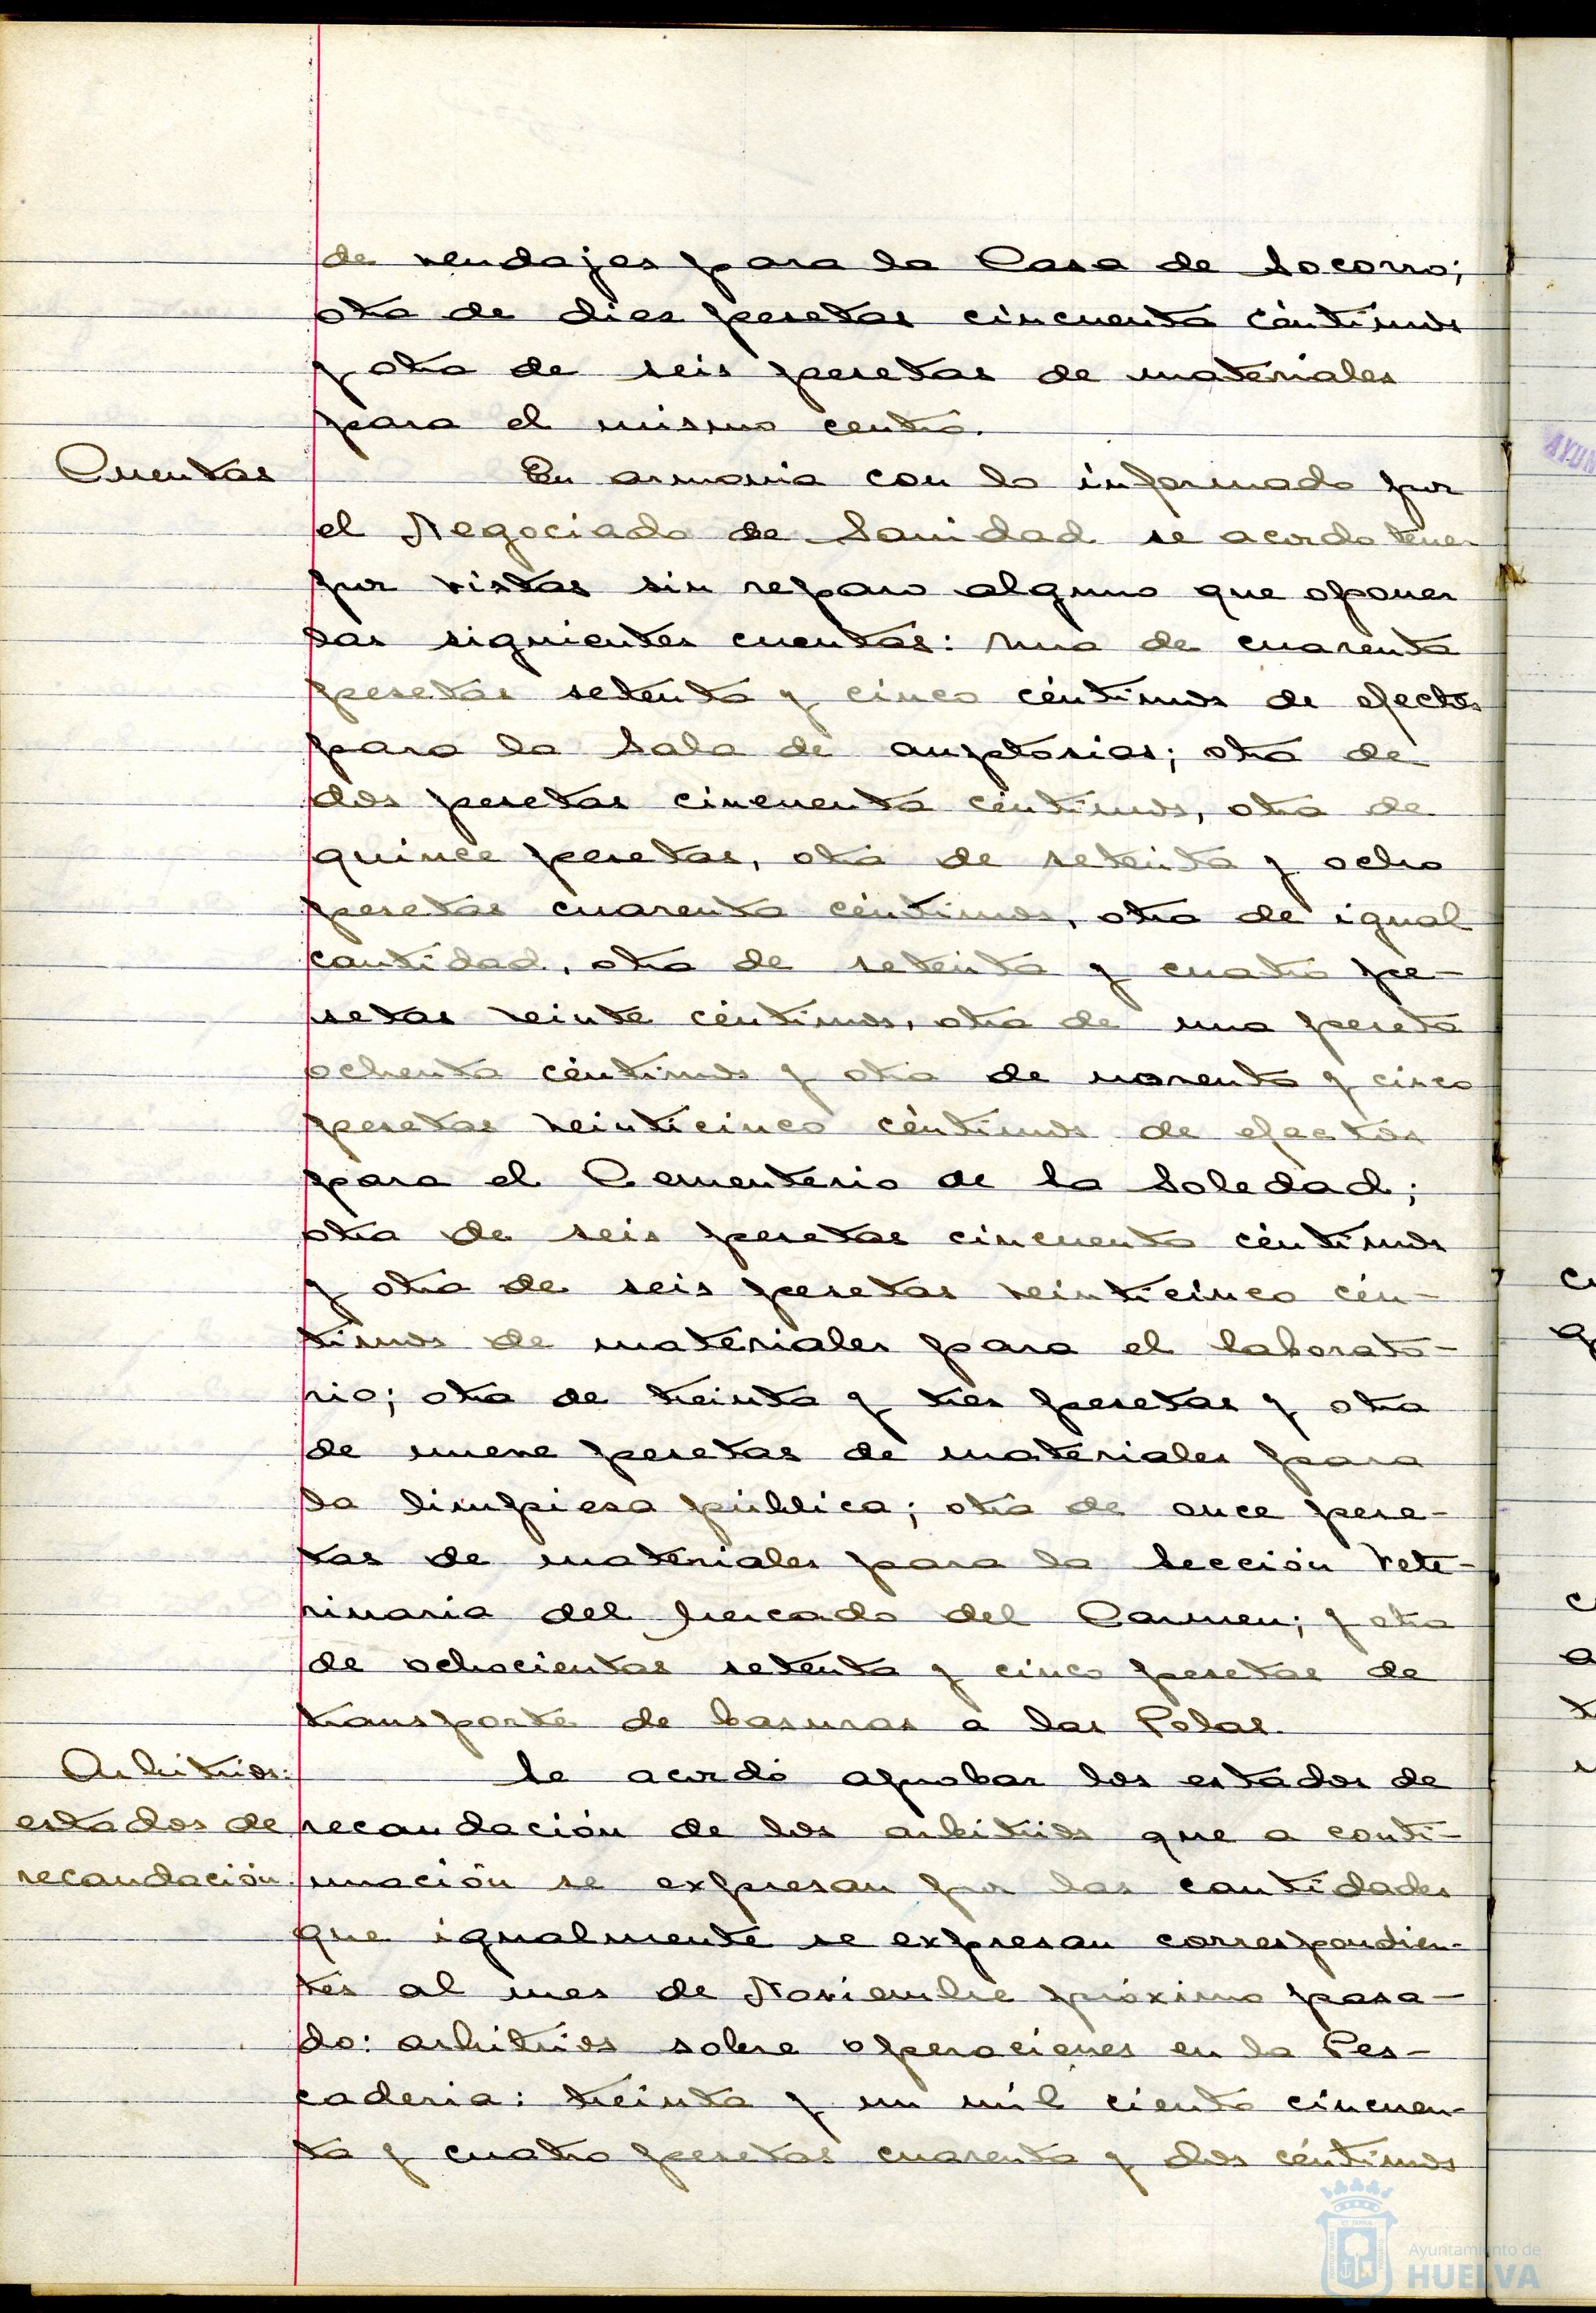 de vendajes para la Casa de Socorro;
otra de diez pesetas cincuenta céntimos
y otra de seis pesetas de materiales
para el mismo centro.
Cuentas
En armonia con lo informado por
el Negociado de Sanidad se acordo tener
por vistas sin reparo alguno que oponer
las siguientes cuentas: una de cuarenta
pesetas setenta y cinco céntimos de efectos
para la Sala de autopsias; otra de
dos pesetas cincuenta céntimos, otra de
quince pesetas, otra de setenta y ocho
pesetas cuarenta céntimos, otra de igual
cantidad, otra de setenta y cuatro pe-
setas veinte céntimos, otra de una peseta
ochenta céntimos y otra de noventa y cinco
pesetas veinticinco céntimos de efectos
para el Cementerio de la Soledad;
otra de seis pesetas cincuenta céntimos
y otra de seis pesetas veinticinco cén-
timos de materiales para el laborato-
rio; otra de treinta y tres pesetas y otra
de nueve pesetas de materiales para
la limpieza pública; otra de once pese-
tas de materiales para la Sección Vete-
rinaria del Mercado del Carmen; y otra
de ochocientas setenta y cinco pesetas de
transporte de basuras a las
Arbitrios:
estados de
recaudación.
Se acordó aprobar los estados de
recaudación de los arbitrios que a conti-
nuación se expresan por las cantidades
que igualmente se expresan correspondien-
tes al mes de Noviembre próximo pasa-
do: arbitrios sobre operaciones en la Pes-
caderia: treinta y un mil ciento cincuen-
ta y cuatro pesetas cuarenta y dos céntimos
Ayuntamiento de
HUELVA